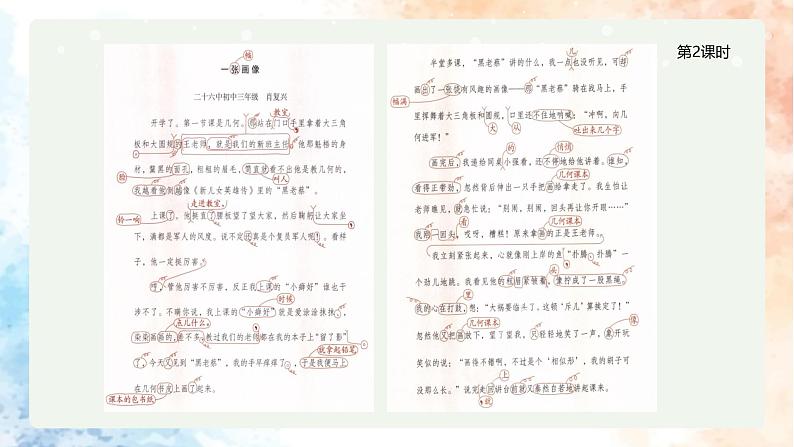 第2课时
幅
一张画像
二十六中初中三年级 肖复兴
教室
开学了。第一节课是几何。那站在门口手里拿着大三角
板和大圆规的王老师,就是我们的新班主任。他那魁梧的身
材,黧黑的面孔,粗粗的眉毛,简直就看不出他是教几何的,
脸
叫人
我越看他倒越像《新儿女英雄传》里的“黑老蔡”。
走进教室,
铃一响
上课了。他挺直了腰板望了望大家,然后鞠躬让大家坐
下,满都是军人的风度。说不定真是个复员军人呢!看样
子,他一定挺厉害。
哼,管他厉害不厉害,反正我上课的“小癖好”谁也干
涉不了。不瞒你说,我上课的“小癖好”就是爱涂涂抹抹,
时候
点儿什么,
染染画画的,差不多教过我们的老师都在我的本子上“留了影”
就拿起铅笔
了,今天又见到“黑老蔡”,我的手早痒痒了,于是我便马上
在几何书皮上画了起来。
课本的包书纸
几
半堂多课,“黑老蔡”讲的什么,我一点也没听见,可却
画出了一张饶有风趣的画像——那“黑老蔡”骑在战马上,手
幅满
里挥舞着大马三角板和大圆规,口里还不住地呐喊:“冲啊,向几
何进军!”
大
从
吐出来几个字
的
悄悄
画完后,我递给同桌小强看,还不停地给他讲着。谁知,
几何课本
看得正带劲,忽然背后伸出一只手把画给拿走了。我生怕让
老师瞧见,就急忙说:“别闹,别闹,回头再让你开眼……”
看
几何课本
我刚一回头,哎呀,糟糕!原来拿画的正是王老师。
我立刻紧张起来,心就像刚上岸的鱼“扑腾”“扑腾”一
头
个劲儿地跳。我看见他的粗眉紧皱着,像拧成了一股黑绳。
里
我的心在打鼓,想:“大祸要临头了。这顿‘斥儿’算挨定了!”
几何课本
像
忽然他又把画放下,望了望我,只轻轻地笑了一声,象开玩
笑似的说:“画得不错啊,不过是个‘相似形’,我的胡子可
没那么长。”说完走回讲台前就又泰然自若地讲起课来。
上
就